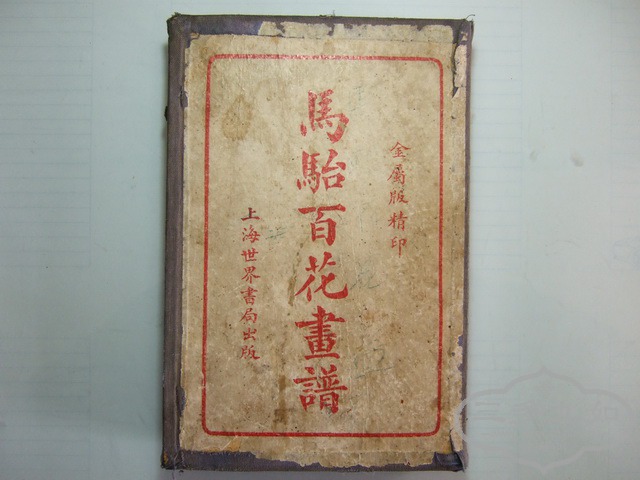 金屬版精印
馬駘百花畫譜
上海世界書局出版